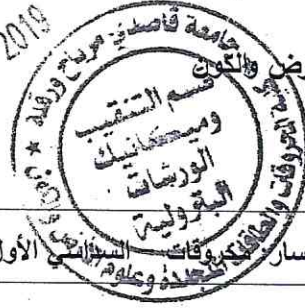 2019
ض والكون
جامعة قاصدي مرباح ورقلة
قسم التنقيب
وميكانيك
الورشات
البترولية
المحروقات والطاقات المتجددة وعلوم
محروقات السداسي الأول